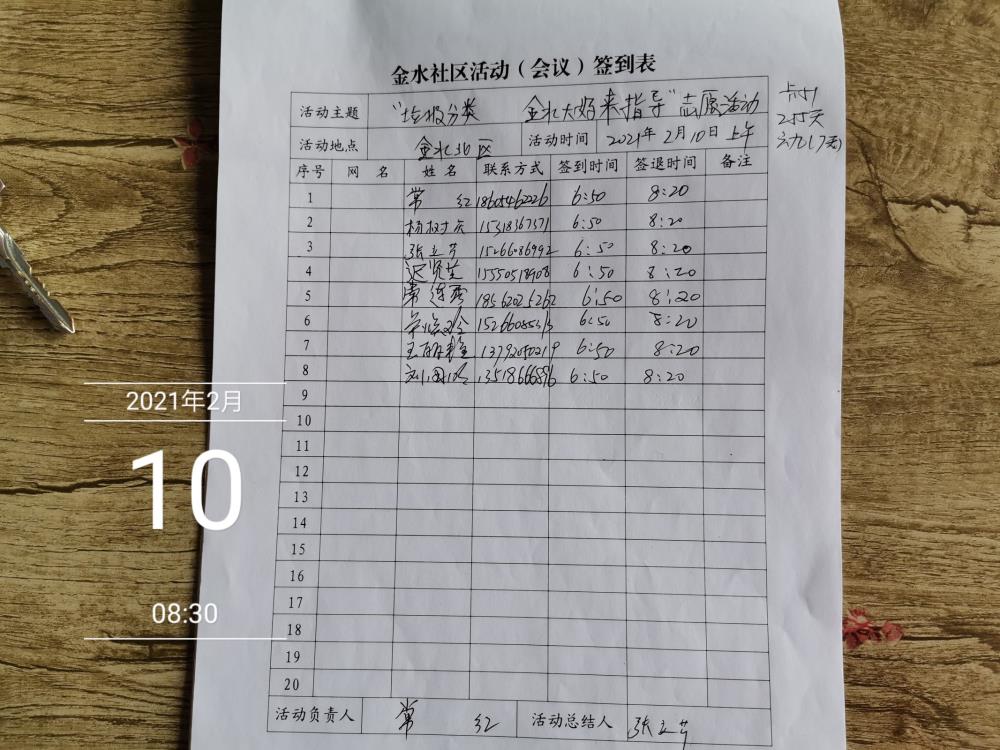 金水社区活动（会议）签到表
活动主题 "垃圾分类 金水大妈来指导"志愿活动
255天
活动地点 金水北区 活动时间 2021年2月10日上午
序号 网 名 姓 名 联系方式 签到时间 签退时间 备注
1 常 红 6:50 8:20
2 杨树庆 15318367371 6:50 8:20
3 张立芳 15266086992 6:50 8:20
4 迟贤英 15550518908 6:50 8:20
5 18562025262 6:50 8:20
6 6:50 8:20
7 6:50 8:20
8 6:50 8:20
9
10
11
12
13
14
15
16
17
18
19
20
活动负责人 常 红 活动总结人 张立芳
2021年2月
10
08:30